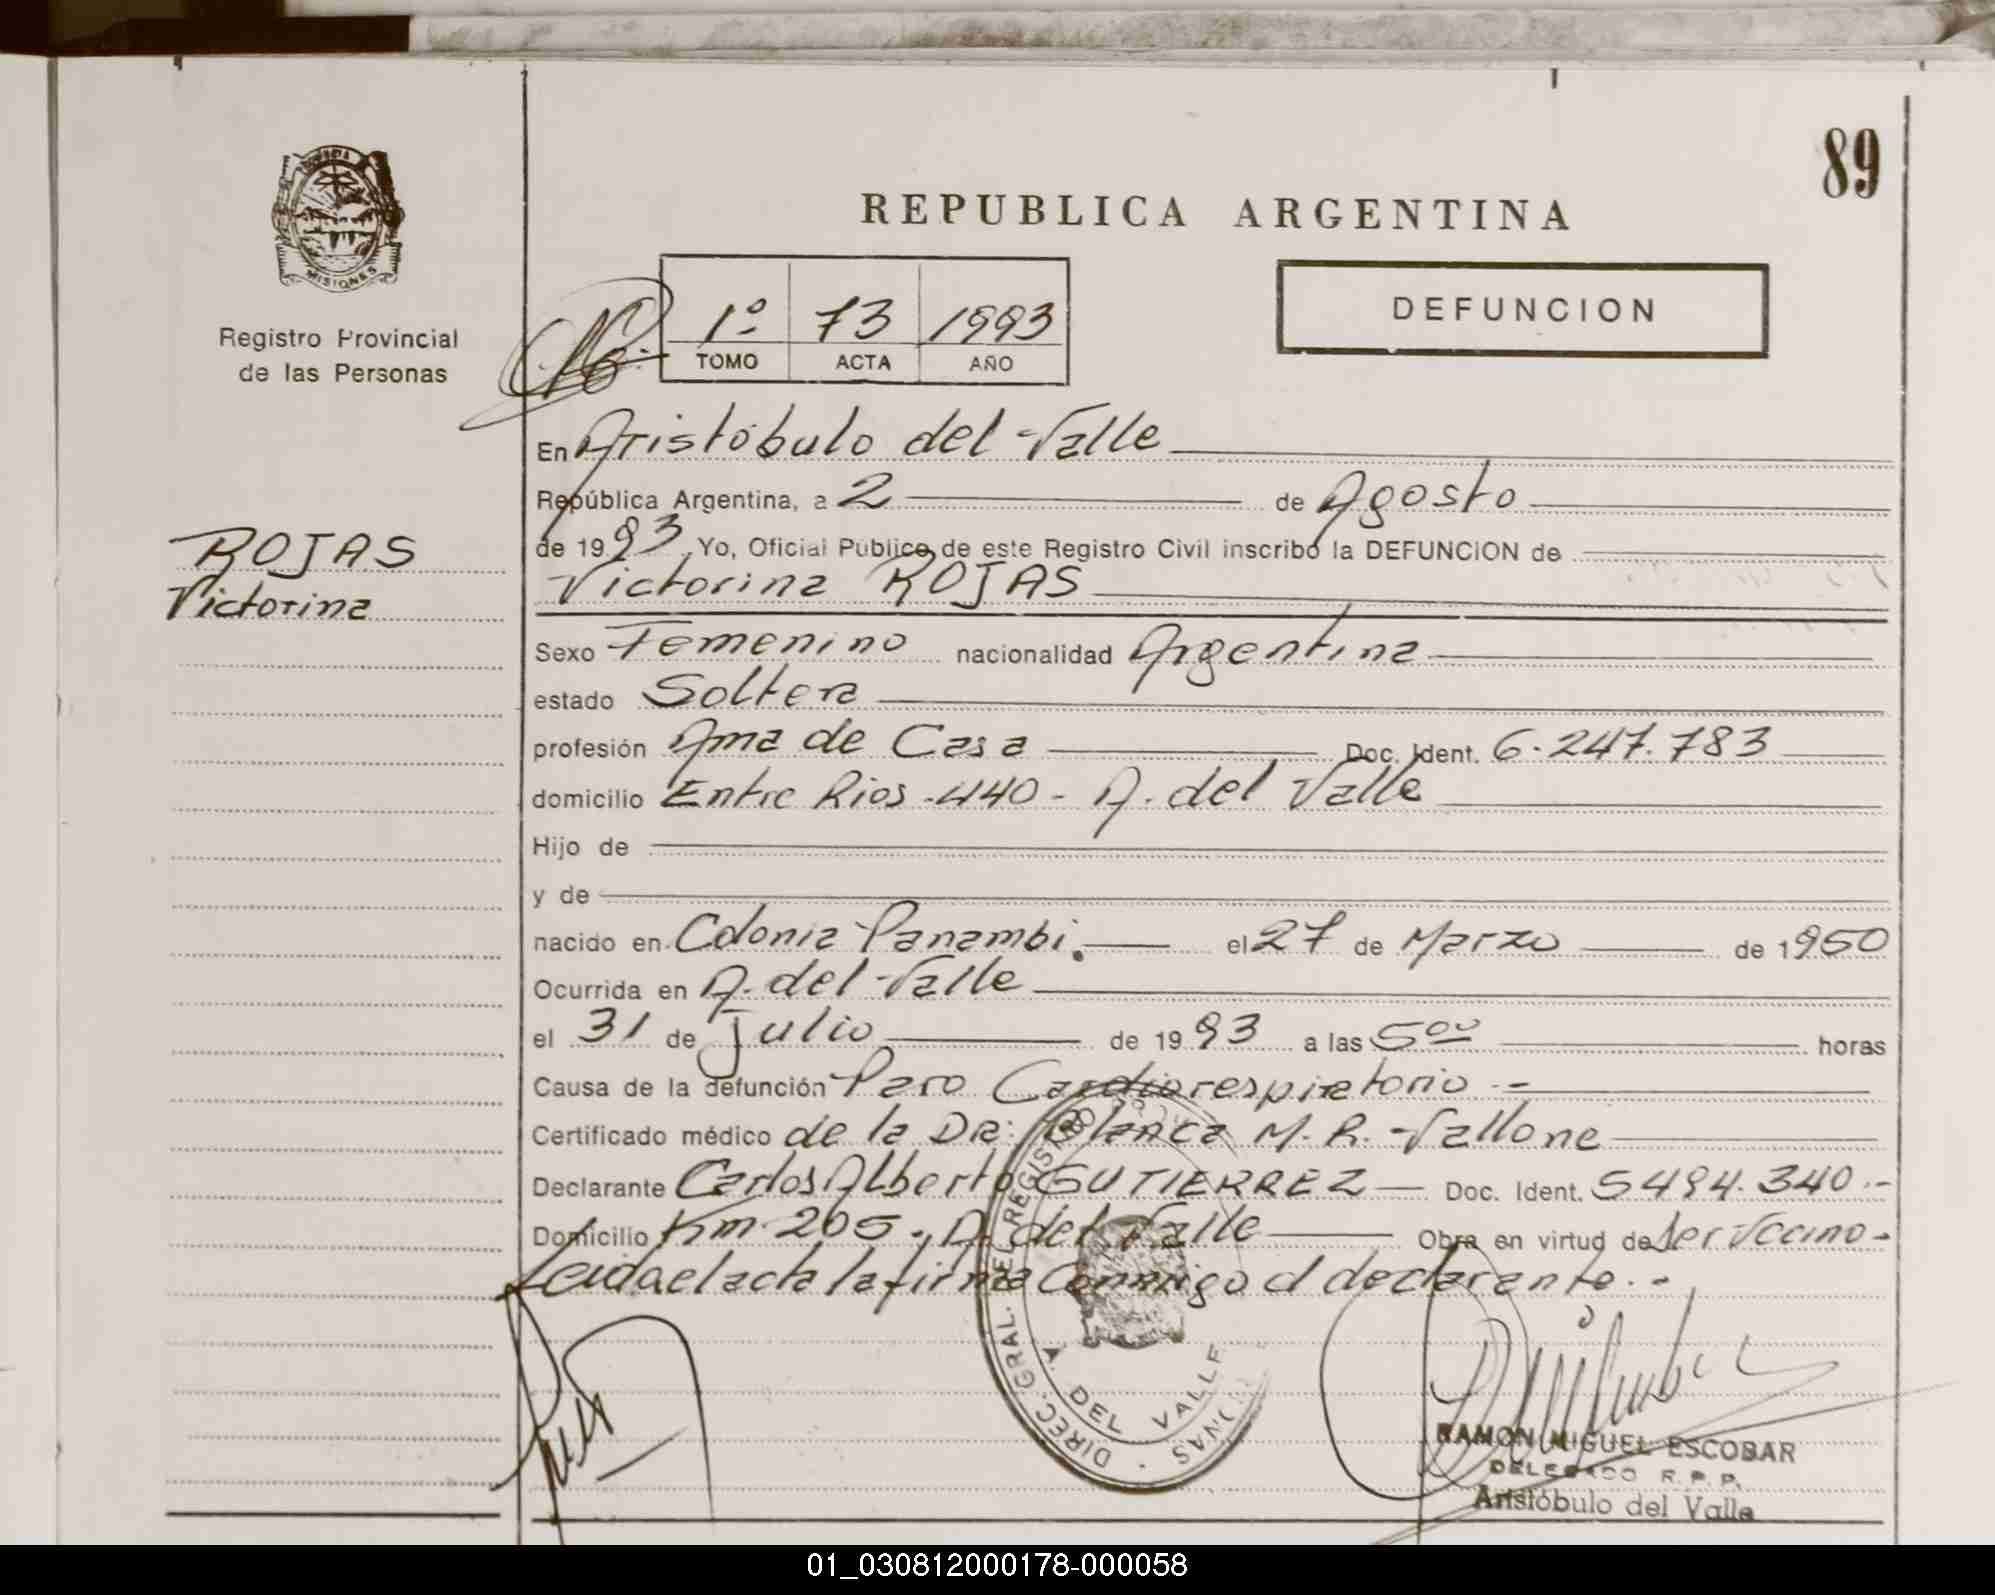 89
REPUBLICA ARGENTINA
MISIONES
Registro Provincial
de las Personas
1º 73 1993
TOMO ACTA AÑO
DEFUNCION
En Aristóbulo del Valle
República Argentina, a 2 de Agosto
de 1993 Yo, Oficial Público de este Registro Civil inscribo la DEFUNCION de
ROJAS
Victorina
Victorina ROJAS
Sexo Femenino nacionalidad Argentina
estado Soltera
profesión Ama de Casa Doc. Ident. 6.247.783
domicilio Entre Rios -440- A. del Valle
Hijo de
y de
nacido en Colonia Panambi. el 27 de Marzo de 1950
Ocurrida en A. del Valle
el 31 de Julio de 1993 a las 5⁰⁰ horas
Causa de la defunción Paro Cardiorespiratorio.-
Certificado médico de la DRa: Blanca M. R. Vallone
Declarante Carlos Alberto GUTIERREZ Doc. Ident. 5494.340.-
Domicilio Km 205. A. del Valle Obra en virtud de ser vecino-
Leida el acta la firma Conmigo el declarante.-
DIREC. GRAL. DEL REGISTRO
A. DEL VALLE
RAMON MIGUEL ESCOBAR
DELEGADO R. P. P.
Aristóbulo del Valle
01_030812000178-000058